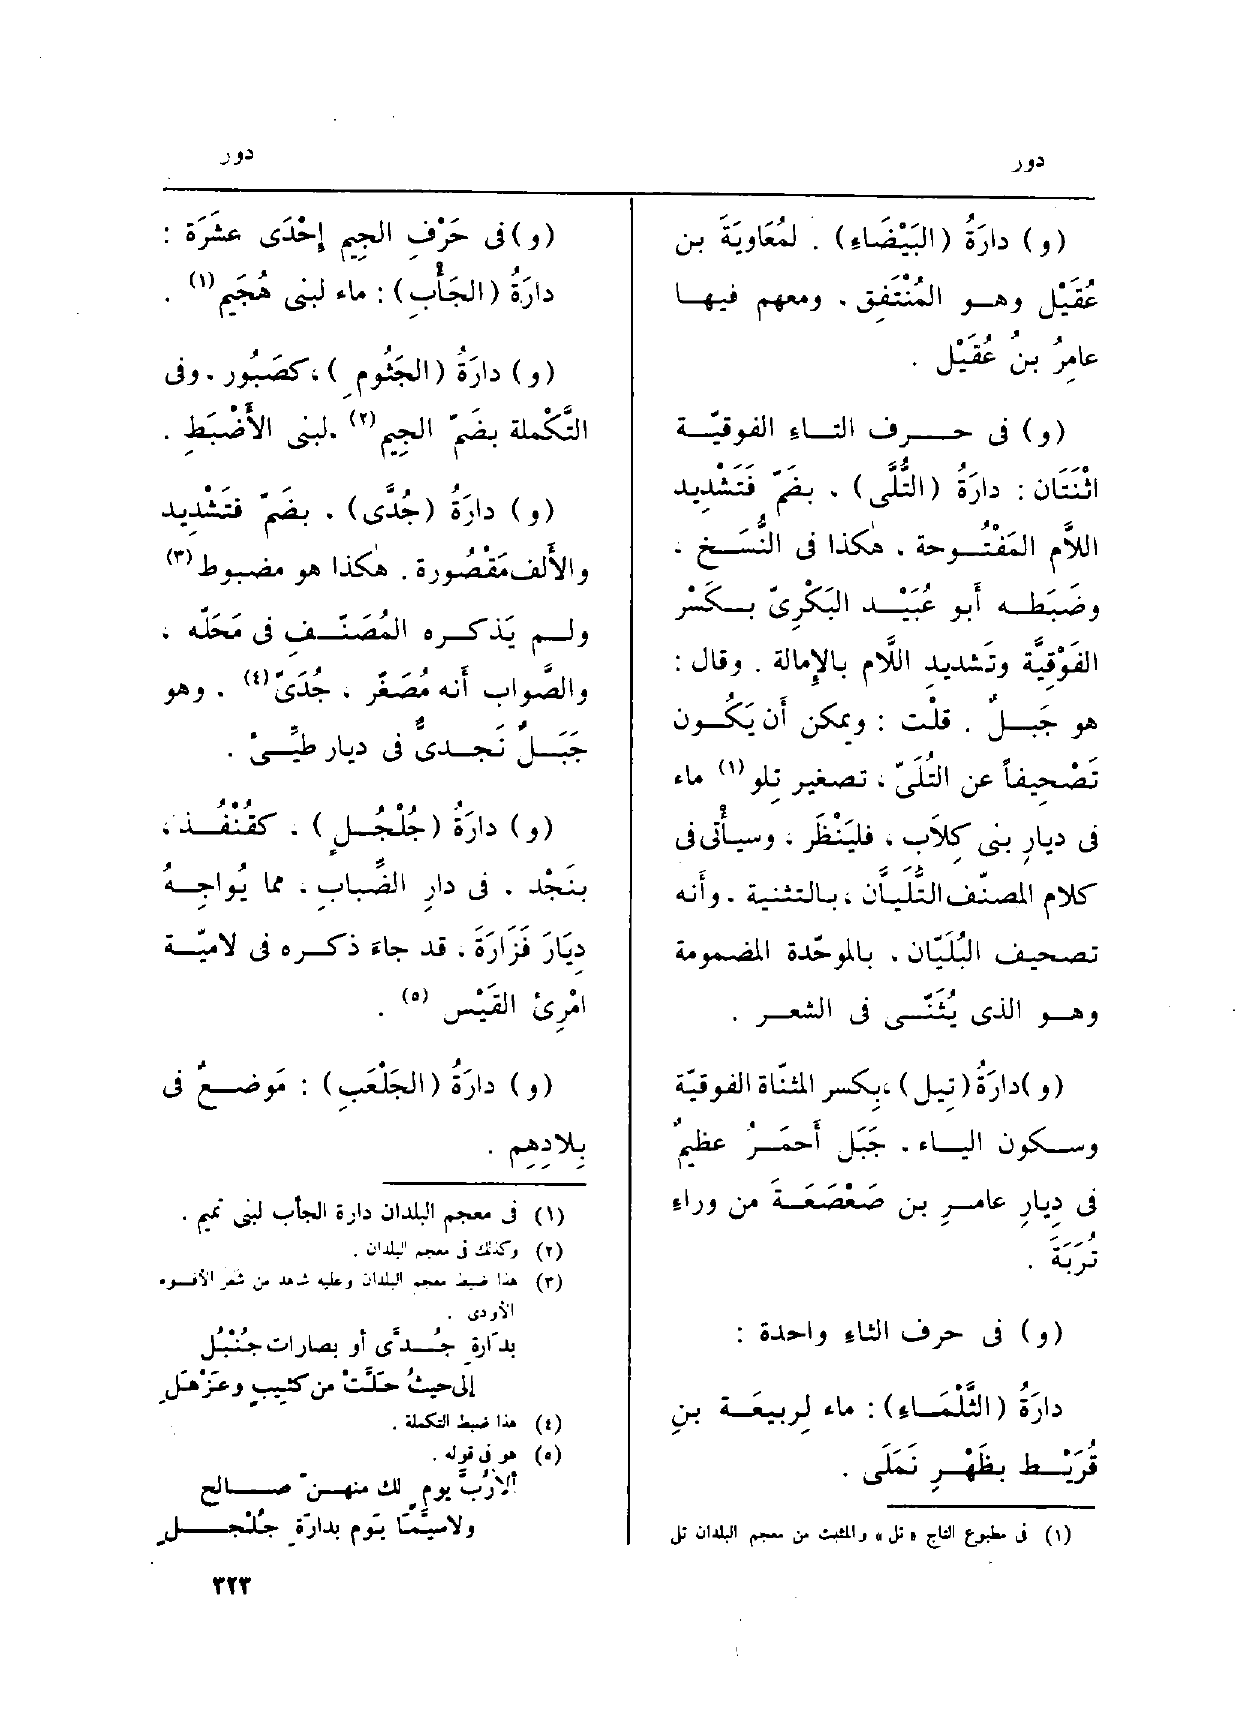 دور
دور
(و) دارَةُ (البَيْضَاءِ) . لمُعَاوِيَةَ بن
عُقَيْلٍ وهو المُنْتَفِق ، ومعهم فيها
عامِرُ بنُ عُقَيْلٍ .
(و) فى حرف التاء الفوقيّة
اثْنَتَان : دارَةُ (التُّلَّى) ، بضَمّ فَتَشْدِيد
اللّام المَفْتوحة ، هٰكذا فى النُّسَخ ،
وضَبَطه أبو عُبَيْد البَكْرِىّ بكَسْرِ
الفَوْقِيَّة وتَشديدِ اللّام بالإِمالة . وقال :
هو جَبلٌ . قلْت : ويمكن أَن يَكُون
تَصْحِيفاً عن التُلَىّ ، تصغير تِلو (١) ماء
فى ديارِ بنى كِلاَب ، فليُنْظَر ، وسيأْتى فى
كلام المصنّف التُّلَيَّان ، بالتثنية . وأَنه
تصحيف البُلَيَّان ، بالموحّدة المضمومة
وهو الذى يُثَنَّى فى الشعر .
(و) دارَةُ (تِيل) ، بكسر المثنّاة الفوقيّة
وسكون الياء ، جَبَل أَحمَرُ عظيمٌ
فى ديارِ عامرِ بن صَعْصَعَةَ من وراء
تُرَبَةَ .
(و) فى حرف الثاء واحدة :
دارَةُ (الثَّلْمَاءِ) : ماء لِربيعَة بنِ
قُرَيْط بظَهْرِ نَمَلَى .
(١) فى مطبوع التاج « تل » والمثبت من معجم البلدان تل
(و) فى حَرْفِ الجِيمِ إِحْدَى عشَرَة :
دارَةُ (الجَأْبِ) : ماء لبنى هُجَيم (١) .
(و) دارَةُ (الجَثُومِ) ، كصَبُور . وفى
التَّكْملة بضَمّ الجِيم (٢) . لبنى الأَضْبَطِ .
(و) دارَةُ (جُدَّى) . بضَمّ فتَشْدِيد
والأَلف مَقْصُورة . هٰكذا هو مضبوط (٣)
ولم يَذكره المُصَنّف فى مَحَلّه ،
والصَّواب أَنه مُصَغّر ، جُدَىّ (٤) . وهو
جَبَلٌ نَجدىٌّ فى ديار طَيِّئ .
(و) دارَةُ (جُلْجُلٍ) ، كقُنْفُذ ،
بنَجْد . فى دارِ الضَّبابِ ، مما يُواجِهُ
دِيَارَ فَزَارَةَ ، قد جاءَ ذكره فى لاميّة
امْرِئ القَيْس (٥) .
(و) دارَةُ (الجَلْعَبِ) : مَوضعٌ فى
بِلادِهِم .
(١) فى معجم البلدان دارة الجأب لبنى تميم .
(٢) وكذلك فى معجم البلدان .
(٣) هذا ضبط معجم البلدان وعليه شاهد من شعر الأفوه
الأودى .
بدَارةِ جُدَّى أو بصارات جُنْبُل
إلى حيثُ حَلَّتْ من كثيبٍ وعَزْهَلِ
(٤) هذا ضبط التكملة .
(٥) هو فى قوله .
ألا رُبَّ يومٍ لك منهن صالح
ولا سيَّمَا يَوم بدارةِ جُلْجلِ
٣٢٣